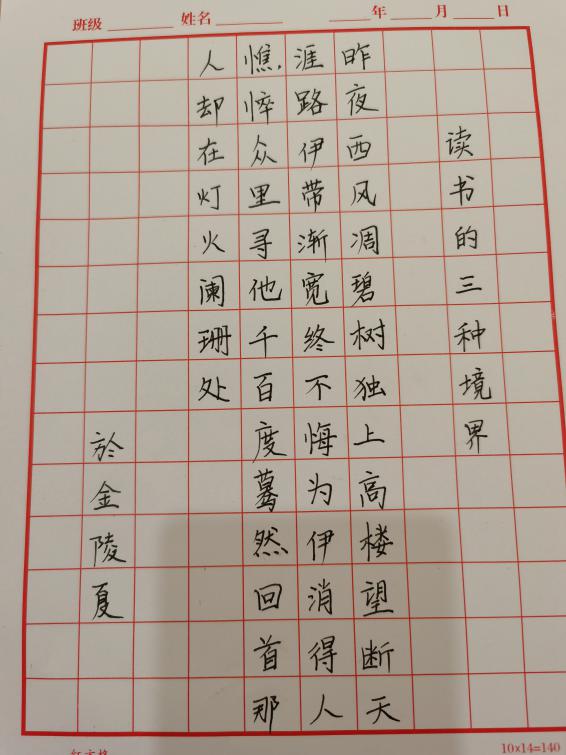 班级 姓名 年 月 日
读书的三种境界
昨夜西风凋碧树独上高楼望断天
涯路伊带渐宽终不悔为伊消得人
憔悴众里寻他千百度蓦然回首那
人却在灯火阑珊处
於金陵夏
10×14=140